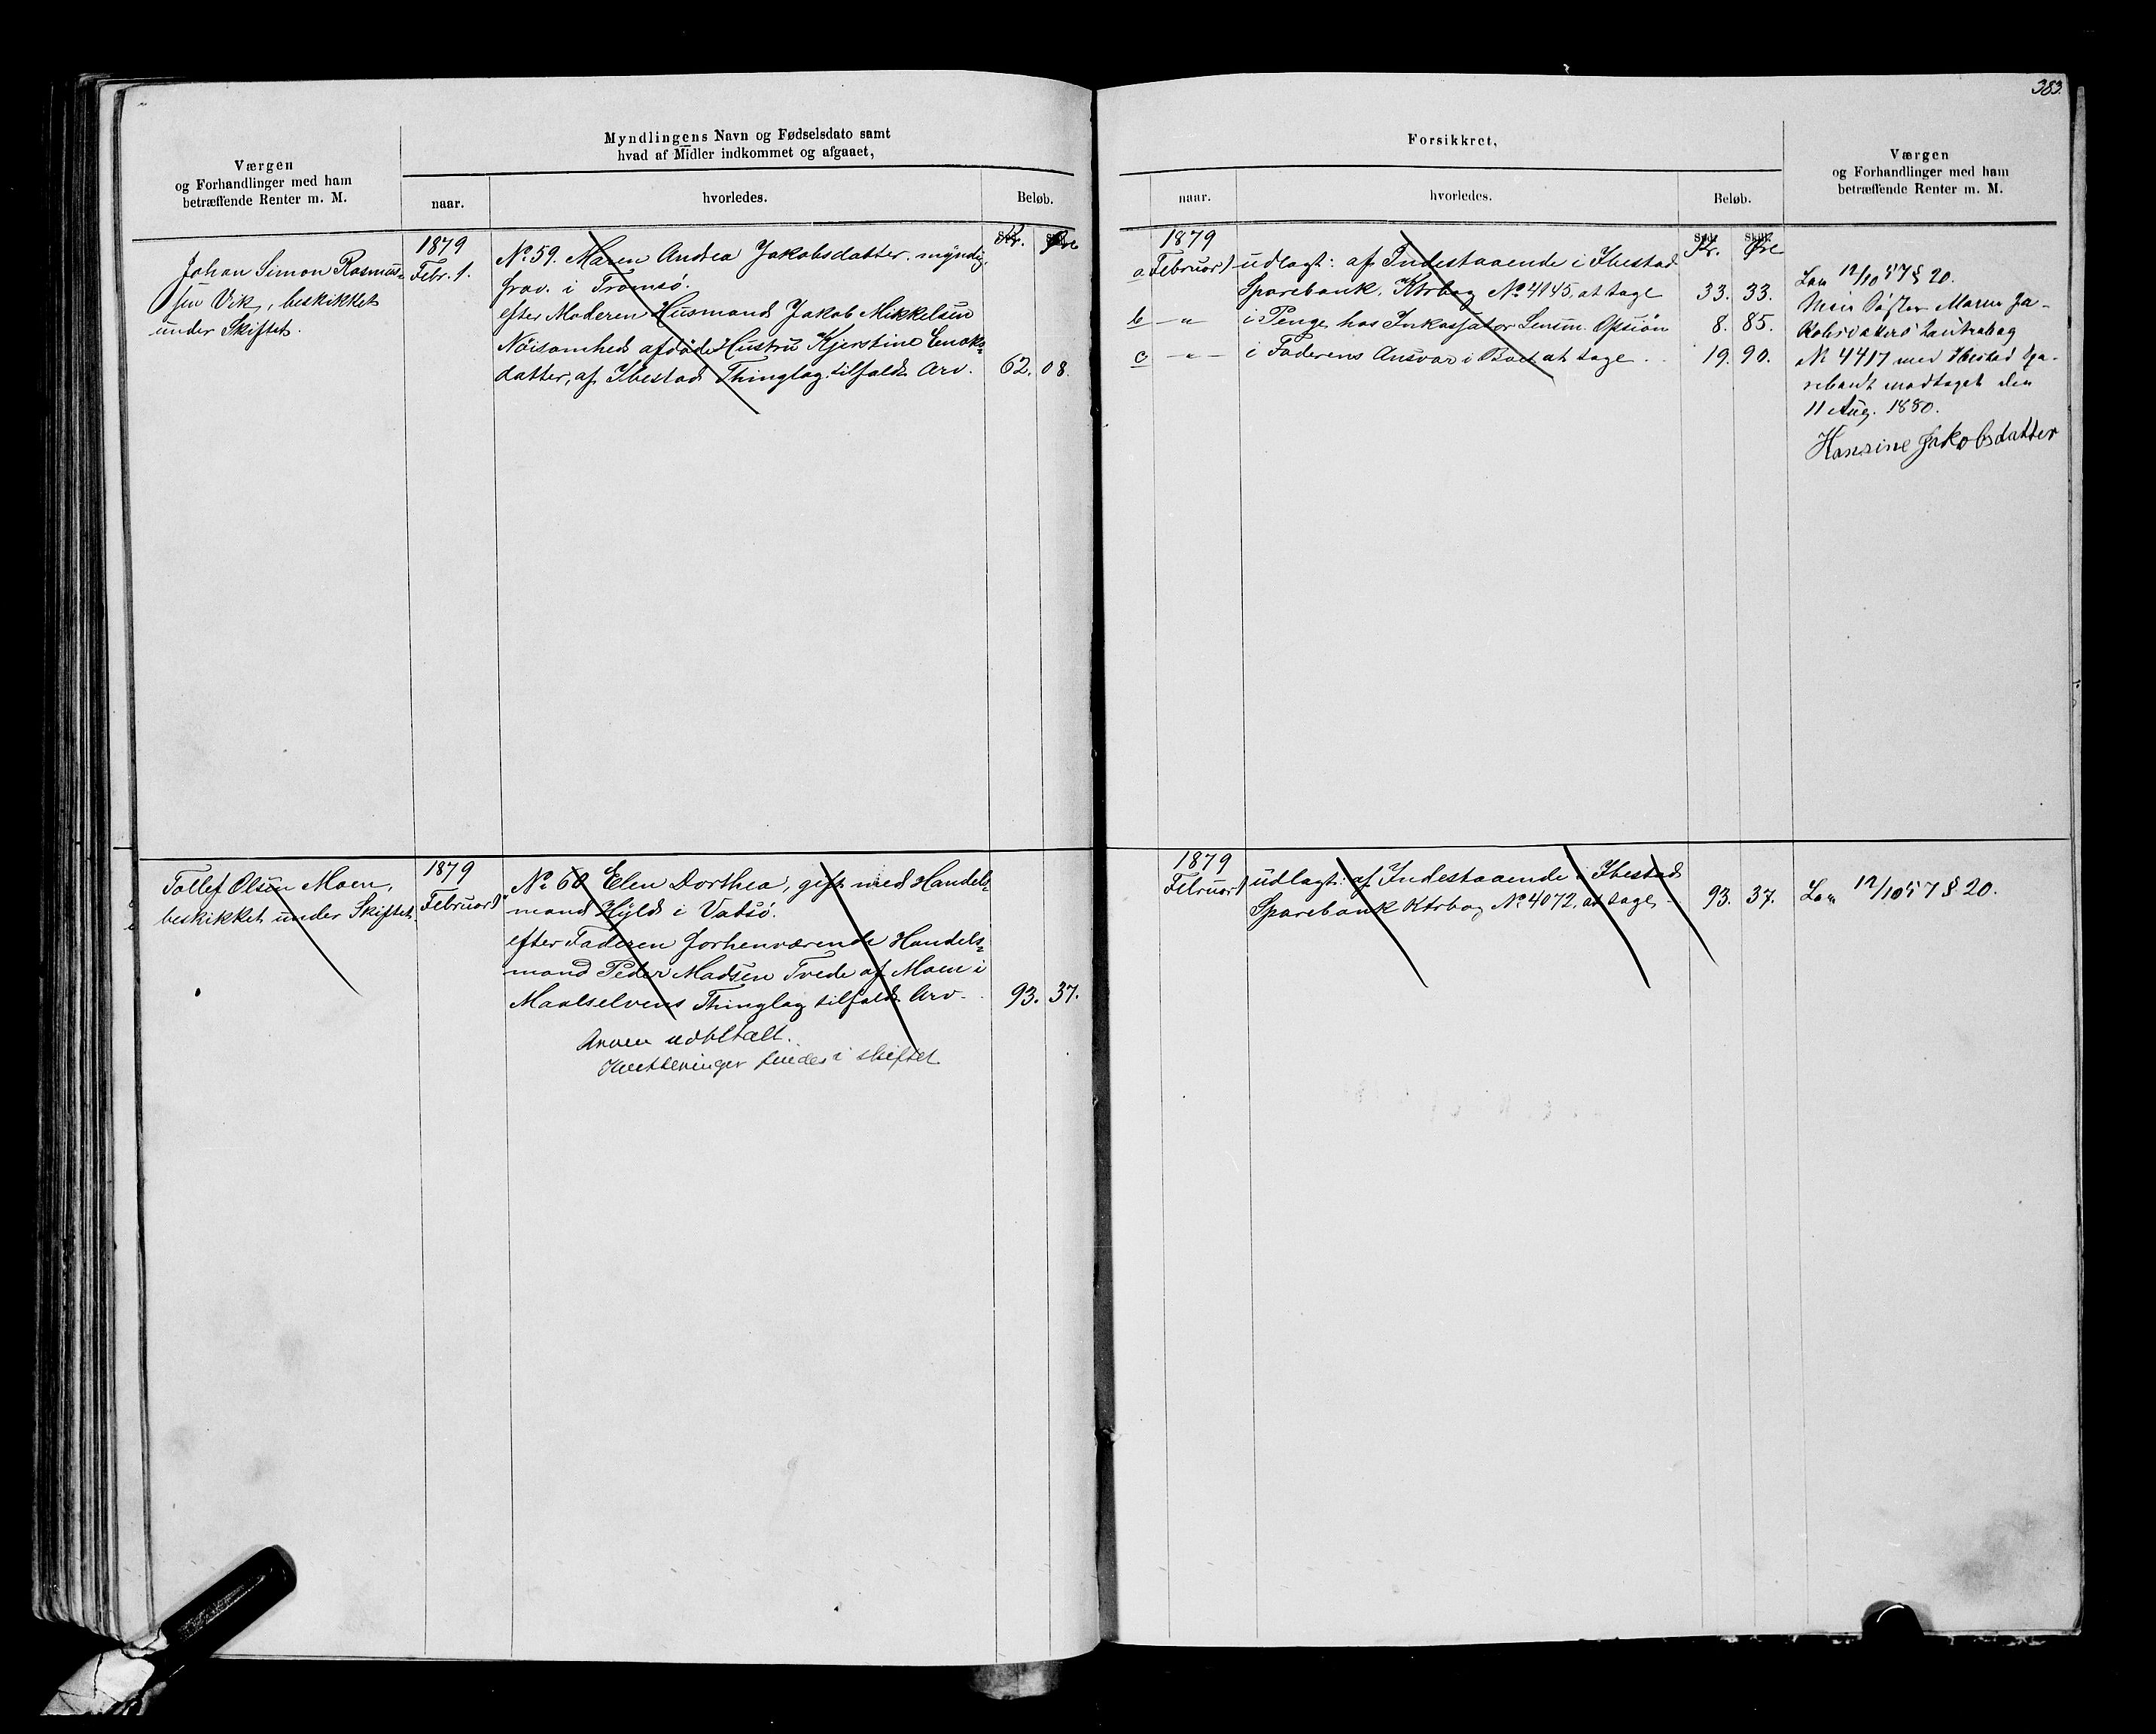 383.
Værgen
og Forhandlinger med ham
betræffende Renter m. M.
Myndlingens Navn og Fødselsdato samt
hvad af Midler indkommet og afgaaet,
naar.
hvorledes.
Beløb.
Kr. Øre
Johan Simon Rasmus-
sen Vik, beskikket
under Skiftet.
1879
Febr. 1.
No 59. Maren Andrea Jakobsdatter, myndig,
frav. i Tromsö.
efter Moderen Husmand Jakob Mikkelsen
Nöisomhed afdöde Hustru Kjerstine Enoks-
datter, af Ibestad Thinglag tilfaldt Arv. 62. 08.
Tollef Olsen Moen,
beskikket under Skiftet.
1879
Februar 1
No 60 Elen Dorthea, gift med Handels-
mand Hyld i Vadsö.
efter Faderen forhenværende Handels-
mand Peder Madsen Tvede af Moen i
Maalselvens Thinglag tilfaldt Arv. 93. 37.
Arven udbetalt.
Kvitteringer findes i skiftet
Forsikkret,
Værgen
og Forhandlinger med ham
betræffende Renter m. M.
naar.
hvorledes.
Beløb.
Kr. Øre
1879
a Februar 1 udlagt: af Indestaaende i Ibestad
Sparebank, Ktrbog No 4145, at tage 33. 33.
b — " — i Penge hos Inkassator Lensm. 8. 85.
c — " — i Faderens Ansvar i Boet at tage 19. 90.
Lov 12/10 57 § 20.
Min Søster Maren Ja-
kobsdatters Contrabog
No 4417 med Ibestad Spa-
rebank modtaget den
11 Aug. 1880.
Hansine Jakobsdatter
1879
Februar 1 udlagt: af Indestaaende i Ibestad
Sparebank Ktrbog No 4072, at tage 93. 37.
Lov 12/10 57 § 20.